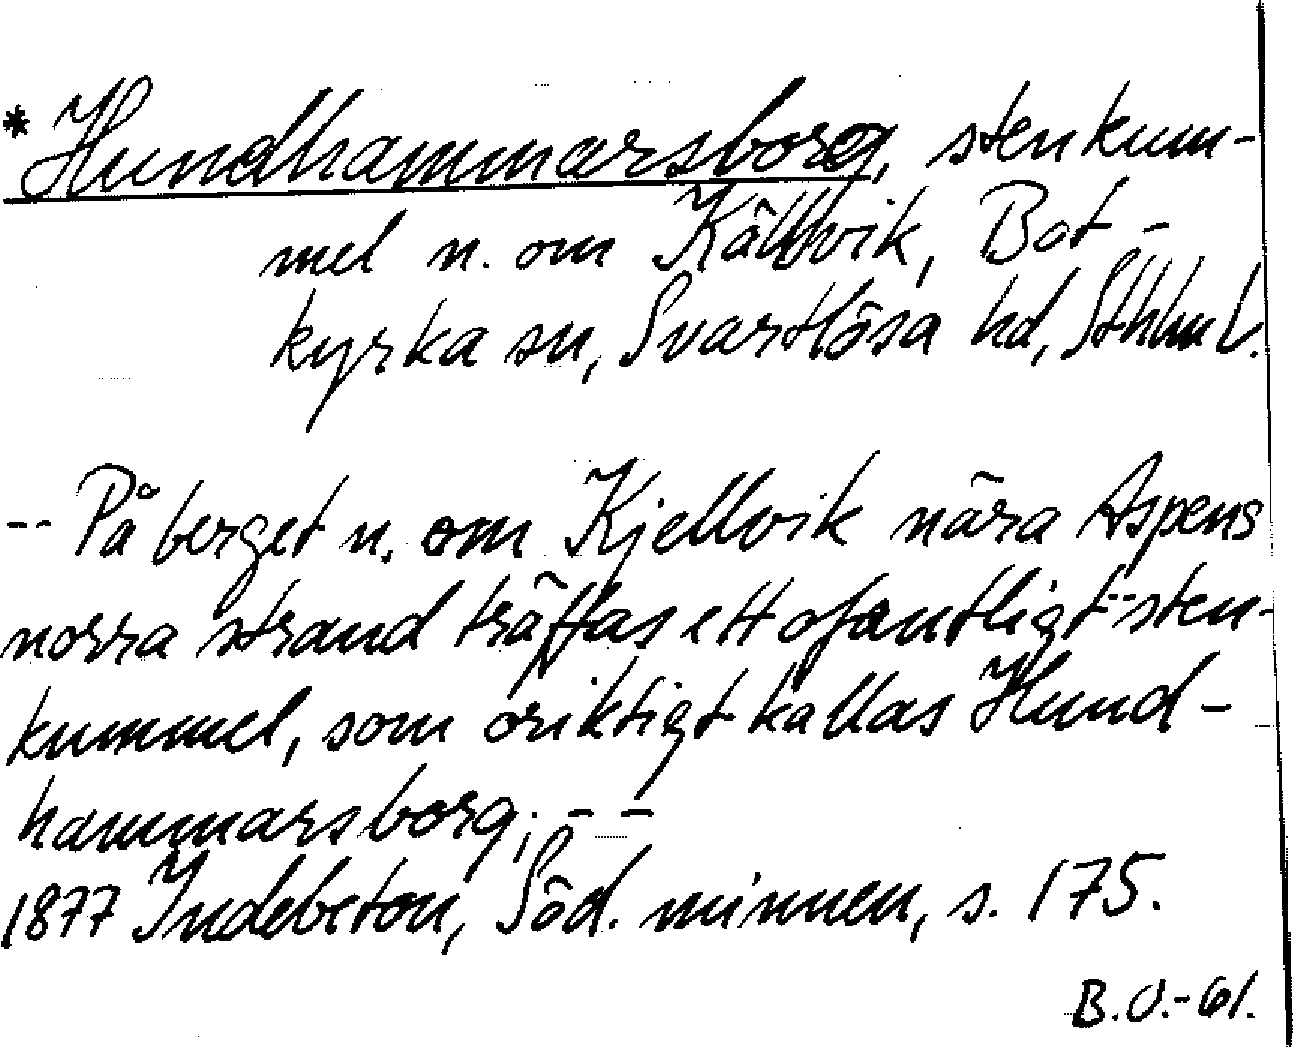 * Hundhammarsborg, stenkum-
mel n. om Källvik, Bot-
kyrka sn, Svartlösa hd, Sthlm L.
-- På berget n. om Kjellvik nära Aspens
norra strand träffas ett ofantligt sten-
kummel, som oriktigt kallas Hund-
hammarsborg; - -
1877 Indebetou, Söd. minnen, s. 175.
B.O.-61.